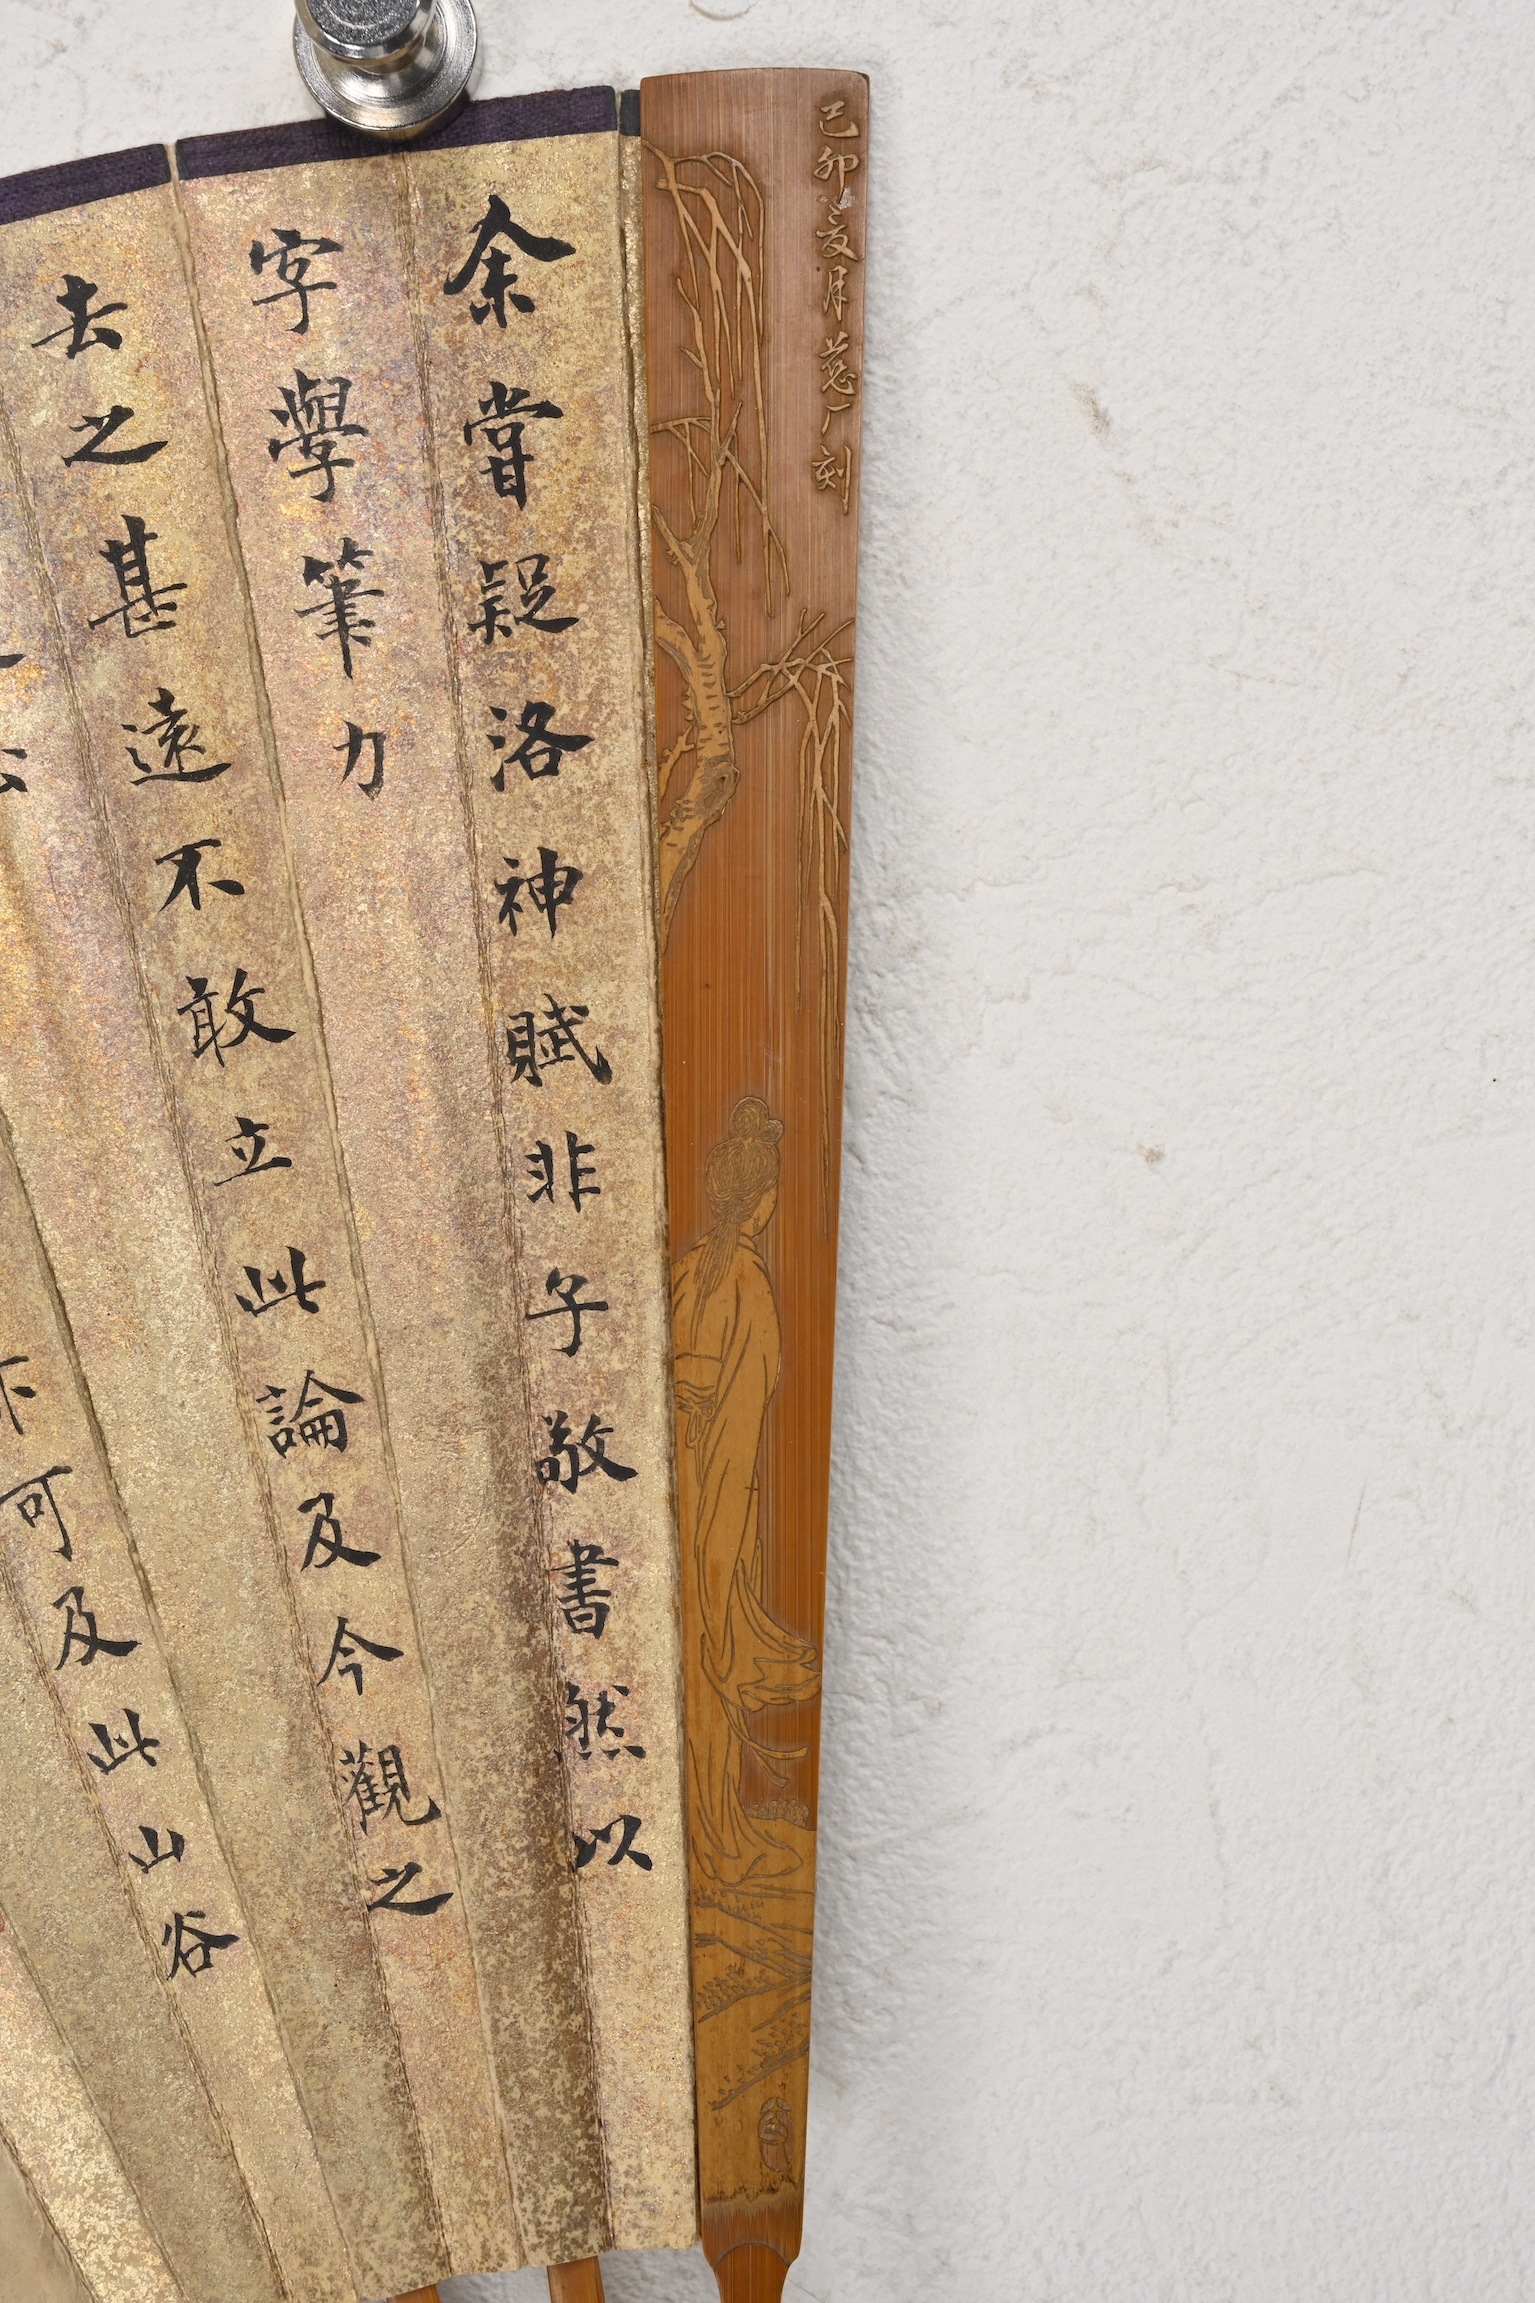 己卯夏月慈厂刻
余嘗疑洛神賦非子敬書然以
字學筆力
去之甚遠不敢立此論及今觀之
可及此山谷